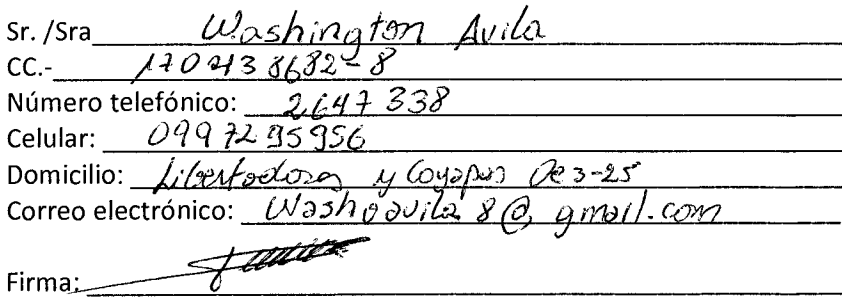 Sr. /Sra Washington Avila
CC.- 170438682-8
Número telefónico: 2647338
Celular: 0997295956
Domicilio: Libertadores y Cayapas Oe3-25
Correo electrónico: Washoavila8@gmail.com
Firma: